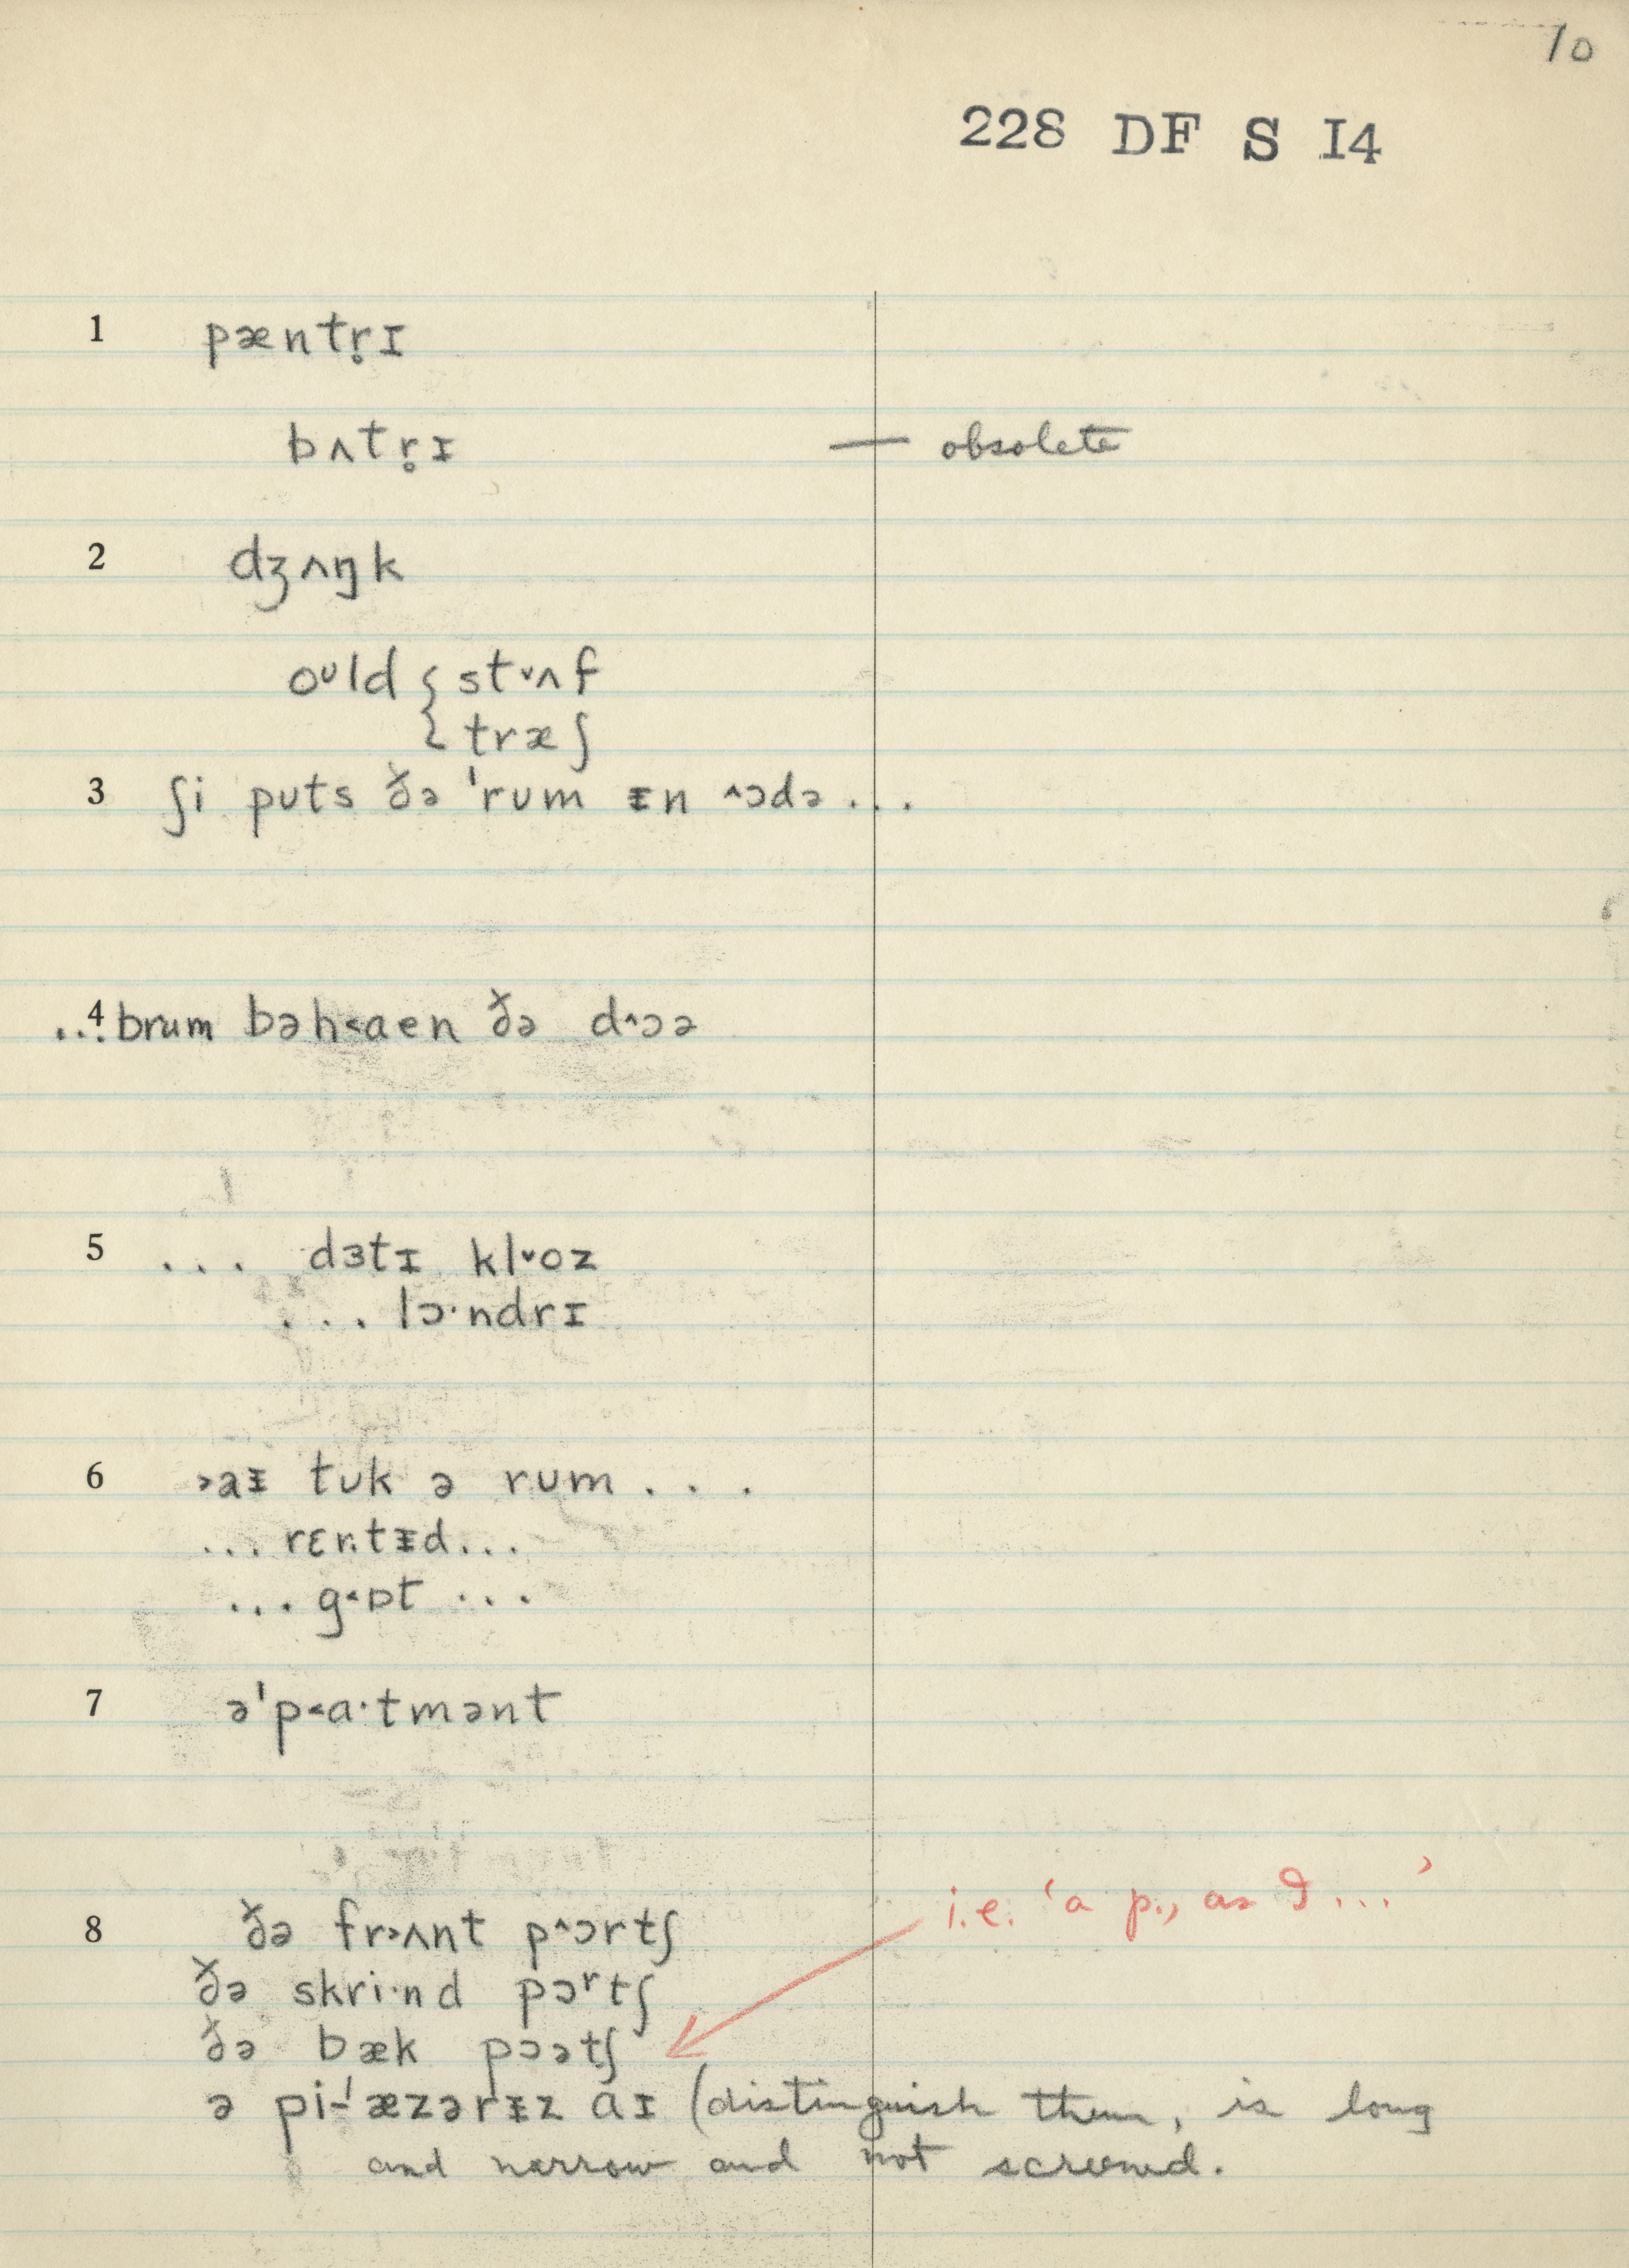 10
228 DF S I4
1 pæntr̥ɪ
bʌtr̥ɪ — obsolete
2 dʒʌŋk
oᶷld { st˅ʌf
{ træʃ
3 ʃi puts ð̌ə ˈrum ᵻn ˄ɔdə ...
4 ...brum bəh˂aen ð̌ə d˄ɔə
5 ... dɜtɪ kl˅oz
... lɔ·ndrɪ
6 ˃aᵻ tuk ə rum ...
... rɛntᵻd...
... g˂ɒt ...
7 əˈp˂a·tmənt
i.e. ‘a p., as I ...’
8 ð̌ə fr˃ʌnt p˄ɔrtʃ
ð̌ə skri·nd pɔʳtʃ
ð̌ə bæk pɔətʃ
ə pi-ˈæzərᵻz aɪ (distinguish them, is long
and narrow and not screened.